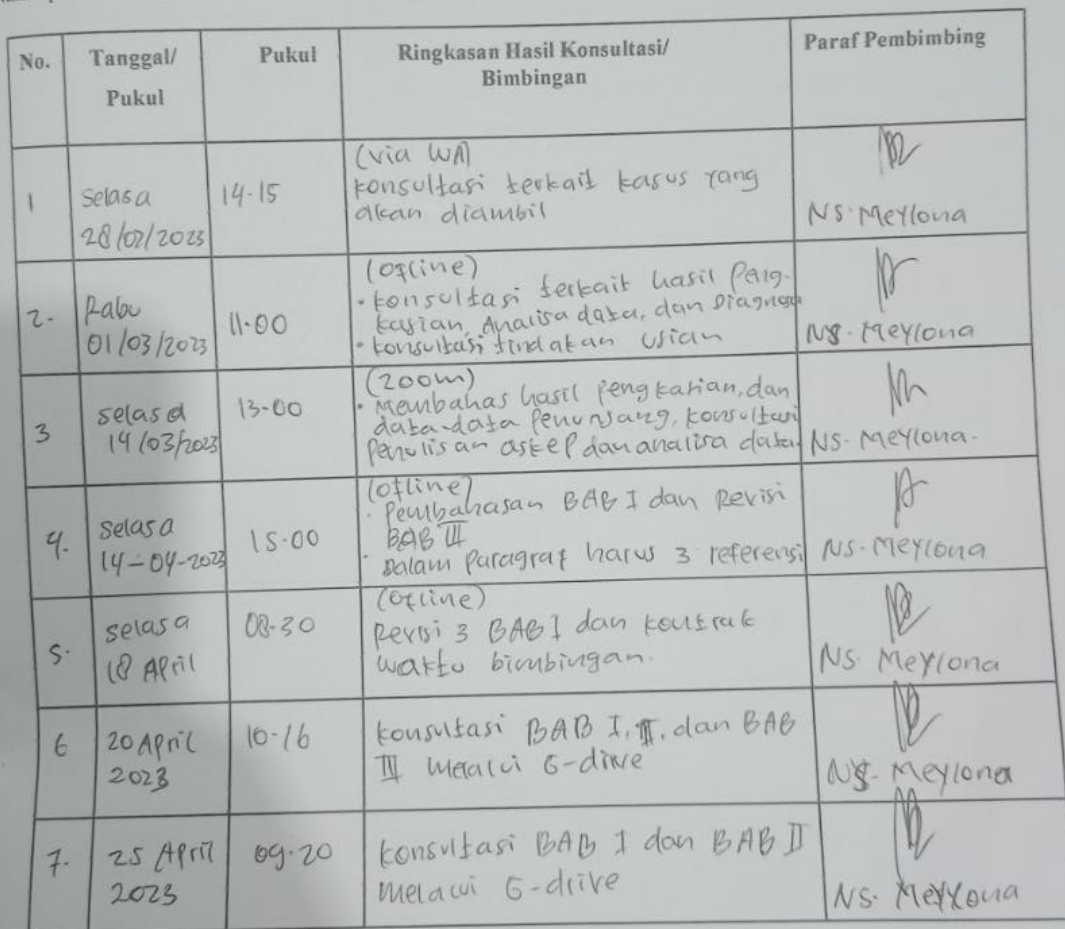 No. Tanggal/ Pukul Pukul Ringkasan Hasil Konsultasi/ Bimbingan Paraf Pembimbing
1 Selasa 28/02/2023 14.15 (via WA)
konsultasi terkait kasus yang
akan diambil
Ns. Meylona
2. Rabu 01/03/2023 11.00 (offline)
• konsultasi terkait hasil Peng-
kasian, Analisa data, dan Diagnosa
• konsultasi tindakan usian
Ns. Meylona
3 selasa 14/03/2023 13.00 (zoom)
• Membahas hasil pengkasian, dan
data-data Penunsang, konsultasi
Penulisan askep dan analisa data
Ns. Meylona.
4. Selasa 14-04-2023 15.00 (offline)
• Pembahasan BAB I dan Revisi
BAB III
• Dalam Paragraf harus 3 referensi
Ns. Meylona
5. selasa 18 April 08.30 (offline)
Revisi 3 BAB I dan kontrak
waktu bimbingan.
Ns. Meylona
6 20 April 2023 10.16 konsultasi BAB I, II, dan BAB
III melalui G-drive
Ns. Meylona
7. 25 April 2023 09.20 konsultasi BAB I dan BAB II
melalui G-drive
Ns. Meylona